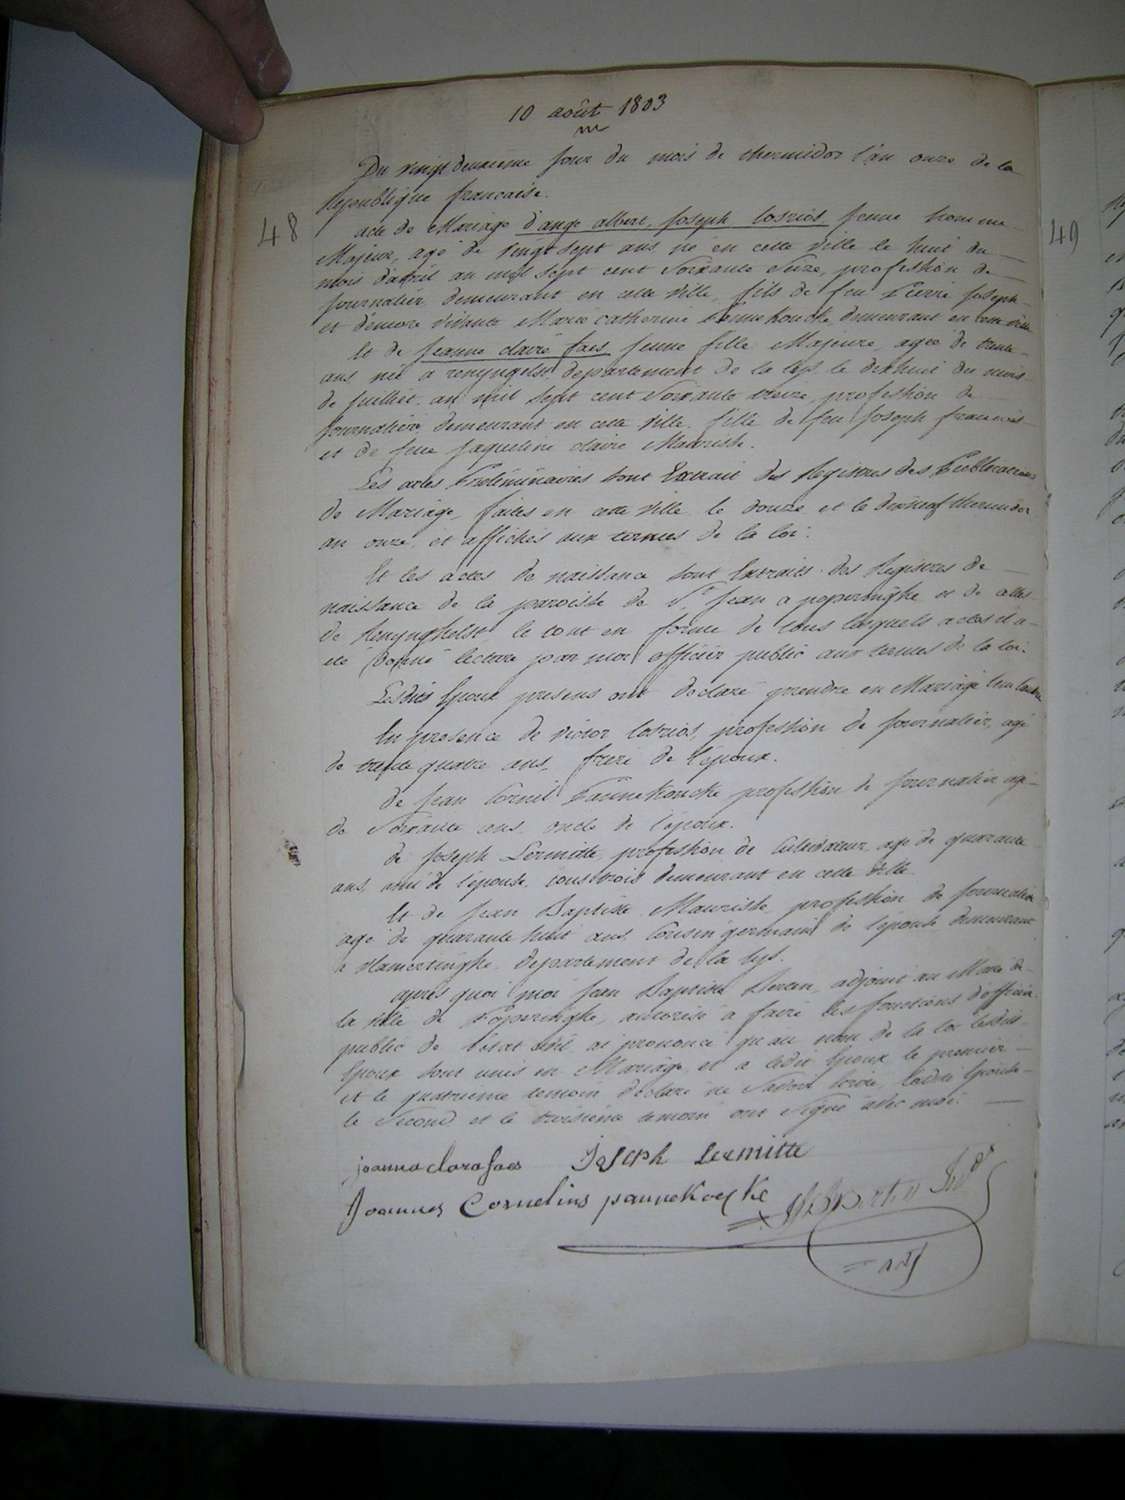 10 août 1803
48
Du vingt deuxieme jour du mois de thermidor l'an onze de la
Republique francaise.
acte de Mariage d'ange albert, Joseph Losrios, jeune homme
Majeur, agé de vingt sept ans, né en cette ville le huit du
mois d'avril an mil sept cent Soixante Seize, profession de
journalier, demeurant en cette ville, fils de feu Pierre Joseph
et d'encore vivante Marie catherine demeurant en cette ville
Et de Jeanne claire faes jeune fille Majeure, agée de trente
ans née a renyngelst departement de la Lys le dixhuit du mois
de Juillet an mil sept cent Soixante treize, profession de
journaliere demeurant en cette ville fille de feu Joseph francois
et de feue Jaqueline claire Mauriste.
Les actes Préliminaires sont Extrait des Registres des Publications
de Mariage, faites en cette ville le douze et le dixneuf thermidor
an onze, et affichés aux termes de la loi.
Et les actes de naissance sont Extraits des Registres de
naissance de la paroisse de St. Jean a poperinghe et de celle
de Renynghelst le tout en forme de tous lesquels actes il a
été donné lecture par moi officier public aux termes de la loi.
Lesdits Epoux presens ont declaré prendre en Mariage l'un l'autre
En presence de victor Losrios, profession de journalier, agé
de trente quatre ans, frere de l'epoux.
de Jean Corneil Pannekoucke profession de journalier agé
de Soixante ans oncle de l'epoux.
de Joseph Lermitte, profession de Cultivateur agé de quarante
ans, ami de l'épouse, tous trois demeurant en cette ville
Et de Jean Baptiste Mauriste, profession de journalier
agé de quarante huit ans Cousin germain de l'épouse demeurant
a vlamertinghe, departement de la Lys.
après quoi moi Jean Baptiste adjoint au Maire de
la ville de Poperinghe, autorisé a faire les fonctions d'officier
public de l'état civil ai prononcé qu'au nom de la loi lesdits
Epoux sont unis en Mariage, et a ledit Epoux le premier
et le quatrieme temoin declaré ne Savoir écrire, ladite Epouse
le Second et le troisieme temoin ont Signé avec moi.
joanna clara faes Joseph Lermitte
Joannes Cornelius pannekoecke
adj
49